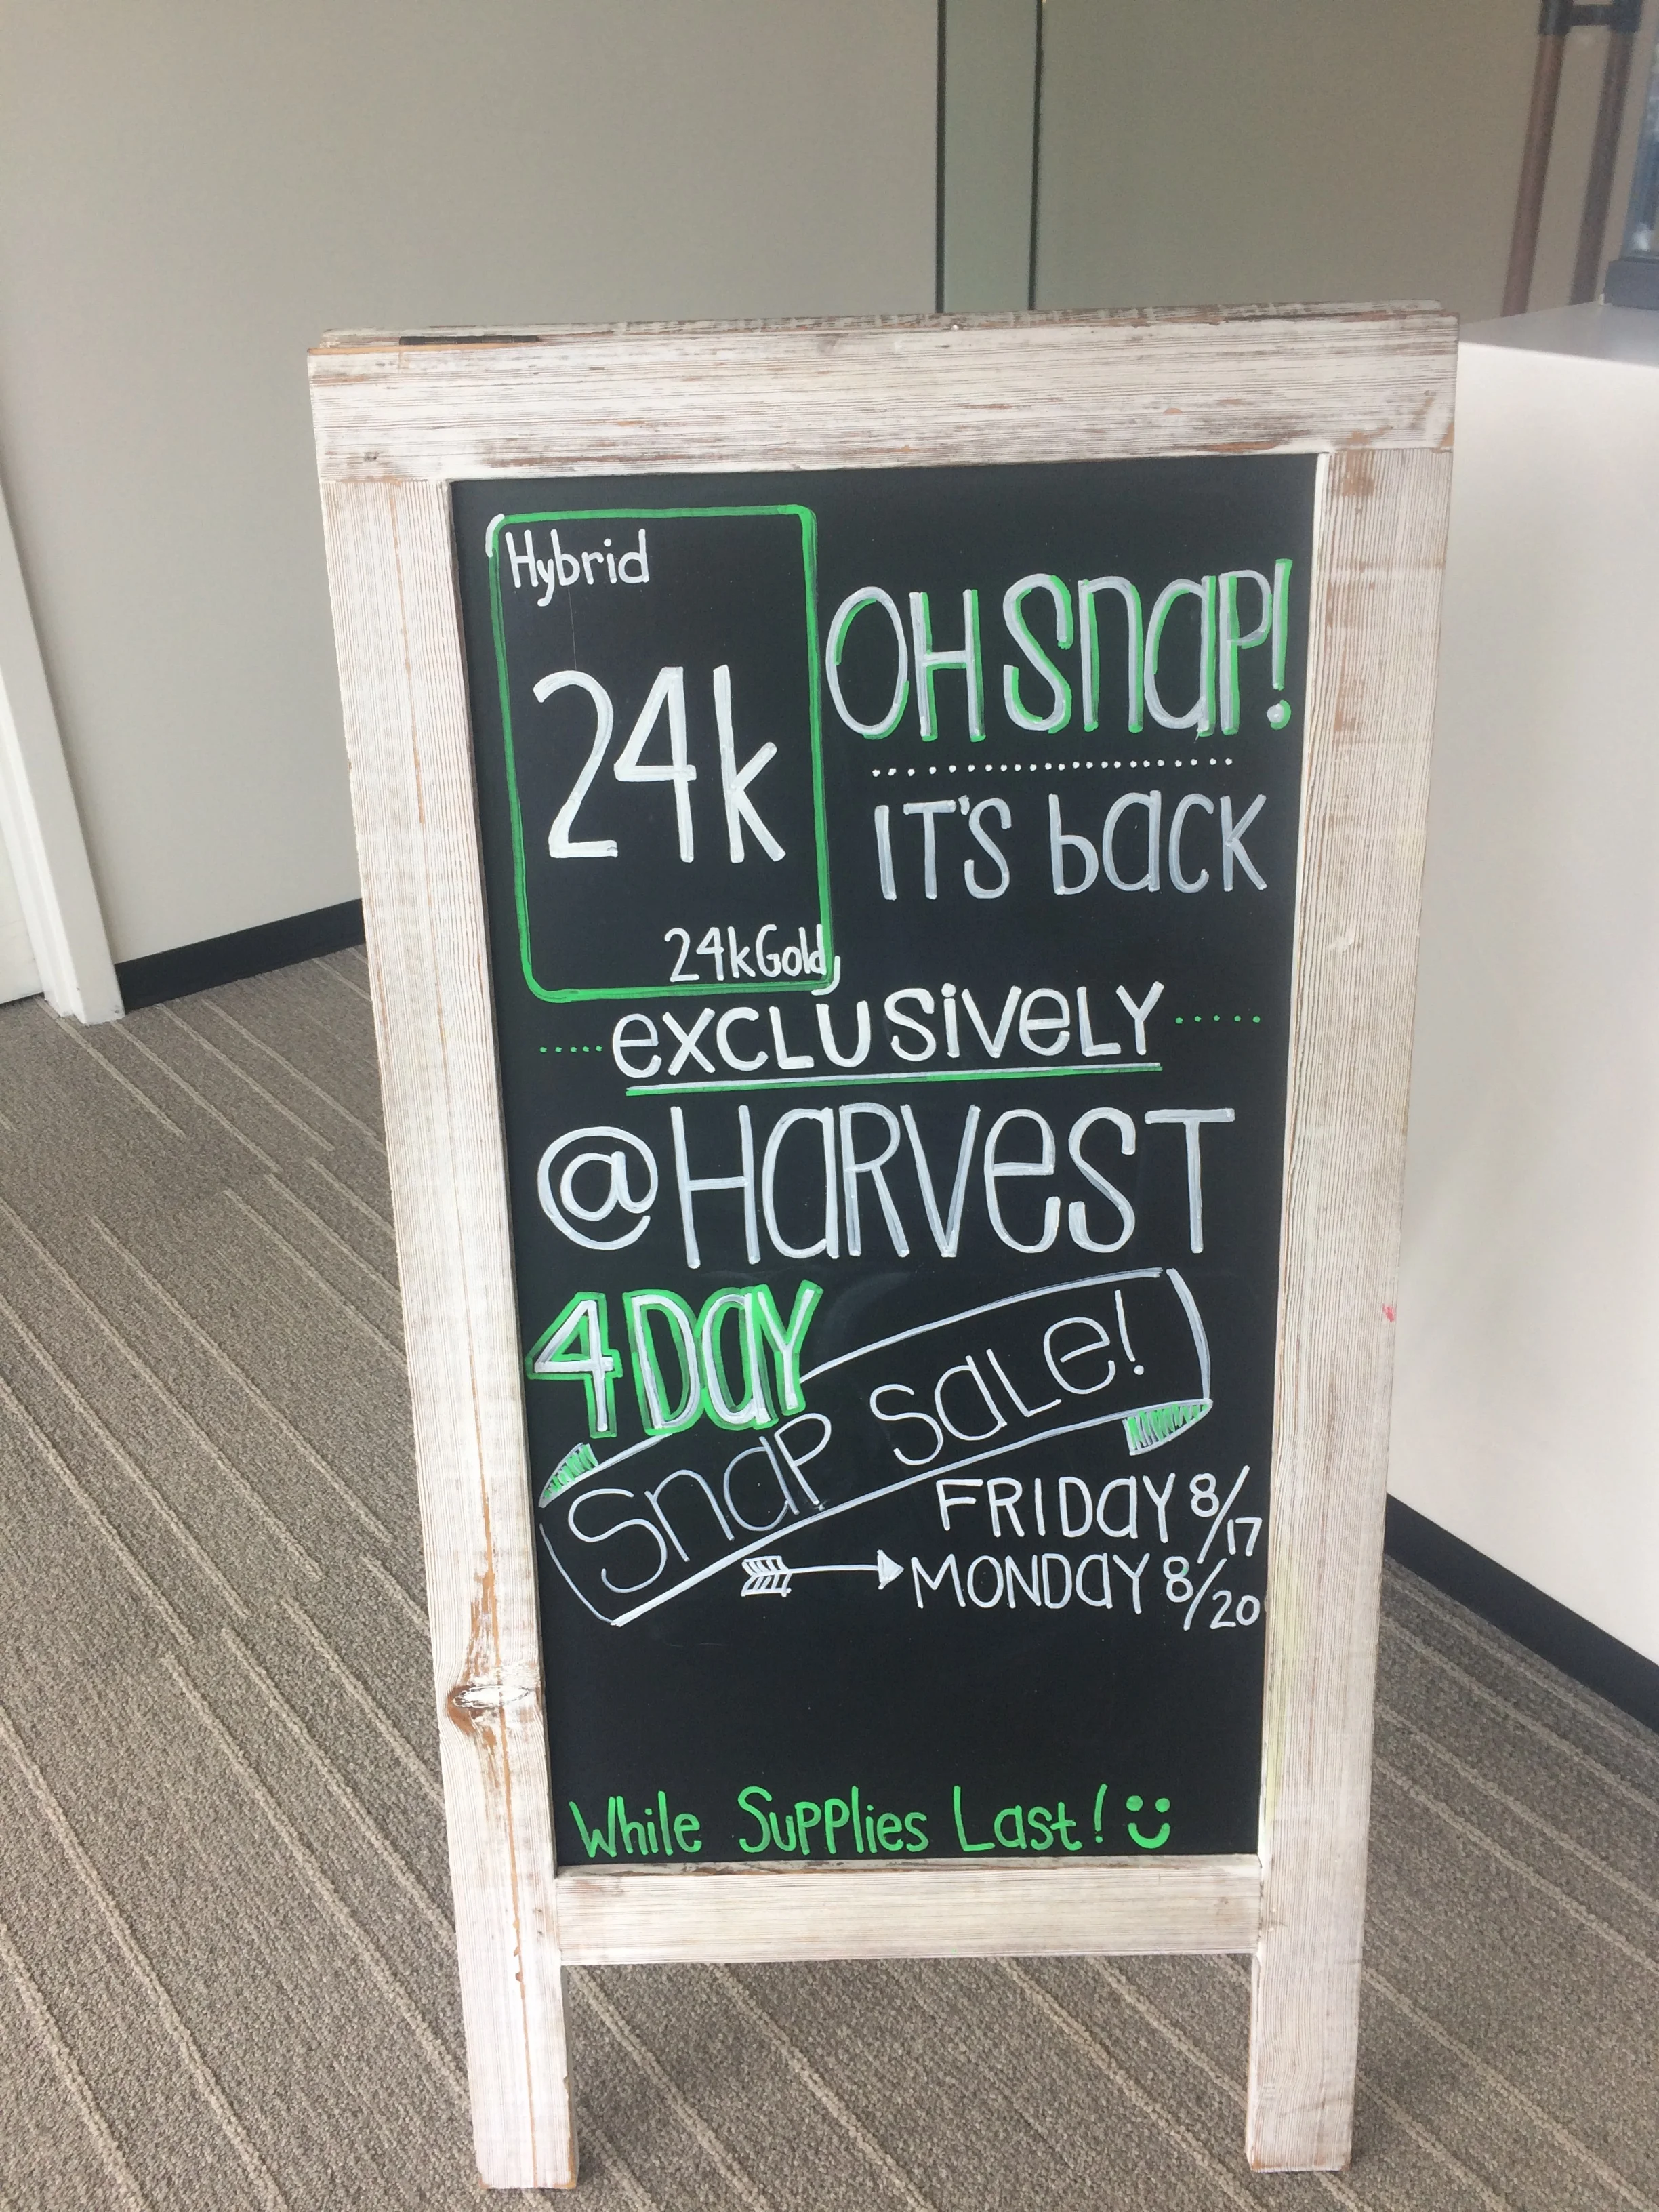 Hybrid
24k
24kGold
OH SnaP!
IT'S back
exCLUSiveLY
@HarveST
4 Day
SnaP SaLe!
FRIDaY 8/17
MONDaY 8/20
While Supplies Last!